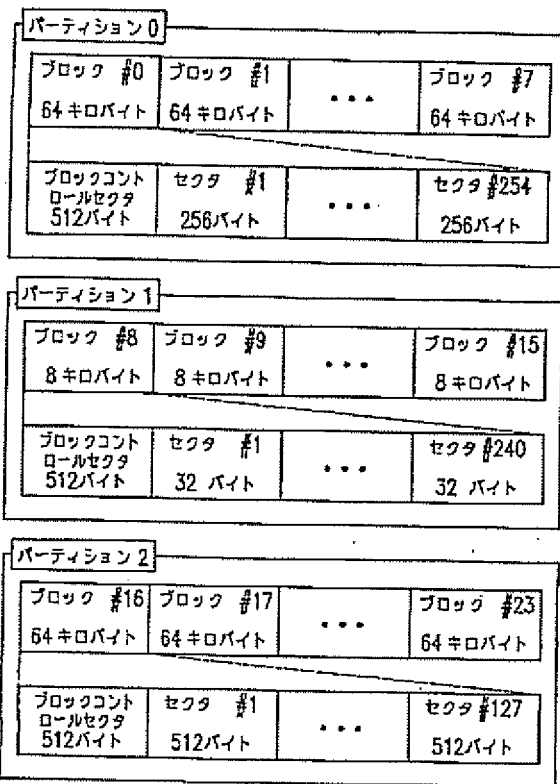 パーティション0
ブロック #0 ブロック #1 ・・・ ブロック #7
64キロバイト 64キロバイト 64キロバイト
ブロックコント
ロールセクタ
512バイト
セクタ #1
256バイト
・・・
セクタ#254
256バイト
パーティション1
ブロック #8 ブロック #9 ・・・ ブロック #15
8キロバイト 8キロバイト 8キロバイト
ブロックコント
ロールセクタ
512バイト
セクタ #1
32 バイト
・・・
セクタ#240
32 バイト
パーティション2
ブロック #16 ブロック #17 ・・・ ブロック #23
64キロバイト 64キロバイト 64キロバイト
ブロックコント
ロールセクタ
512バイト
セクタ #1
512バイト
・・・
セクタ#127
512バイト